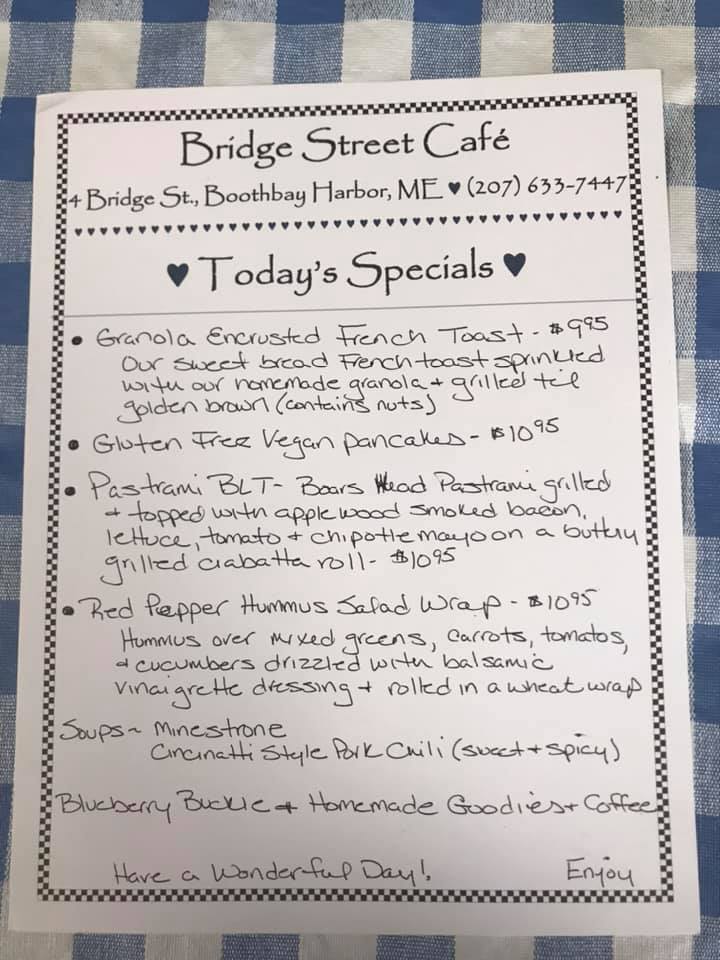 Bridge Street Café
4 Bridge St., Boothbay Harbor, ME ♥ (207) 633-7447
♥ Today's Specials ♥
• Granola Encrusted French Toast - $9.95
Our sweet bread French toast sprinkled
with our homemade granola + grilled til
golden brown (contains nuts)
• Gluten Free Vegan pancakes - $10.95
• Pastrami BLT - Boars Head Pastrami grilled
+ topped with applewood smoked bacon,
lettuce, tomato + chipotle mayo on a buttery
grilled ciabatta roll - $10.95
• Red Pepper Hummus Salad Wrap - $10.95
Hummus over mixed greens, carrots, tomatos,
+ cucumbers drizzled with balsamic
vinaigrette dressing + rolled in a wheat wrap
Soups ~ Minestrone
Cincinatti Style Pork Chili (sweet + spicy)
Blueberry Buckle + Homemade Goodies + Coffee
Have a Wonderful Day! Enjoy